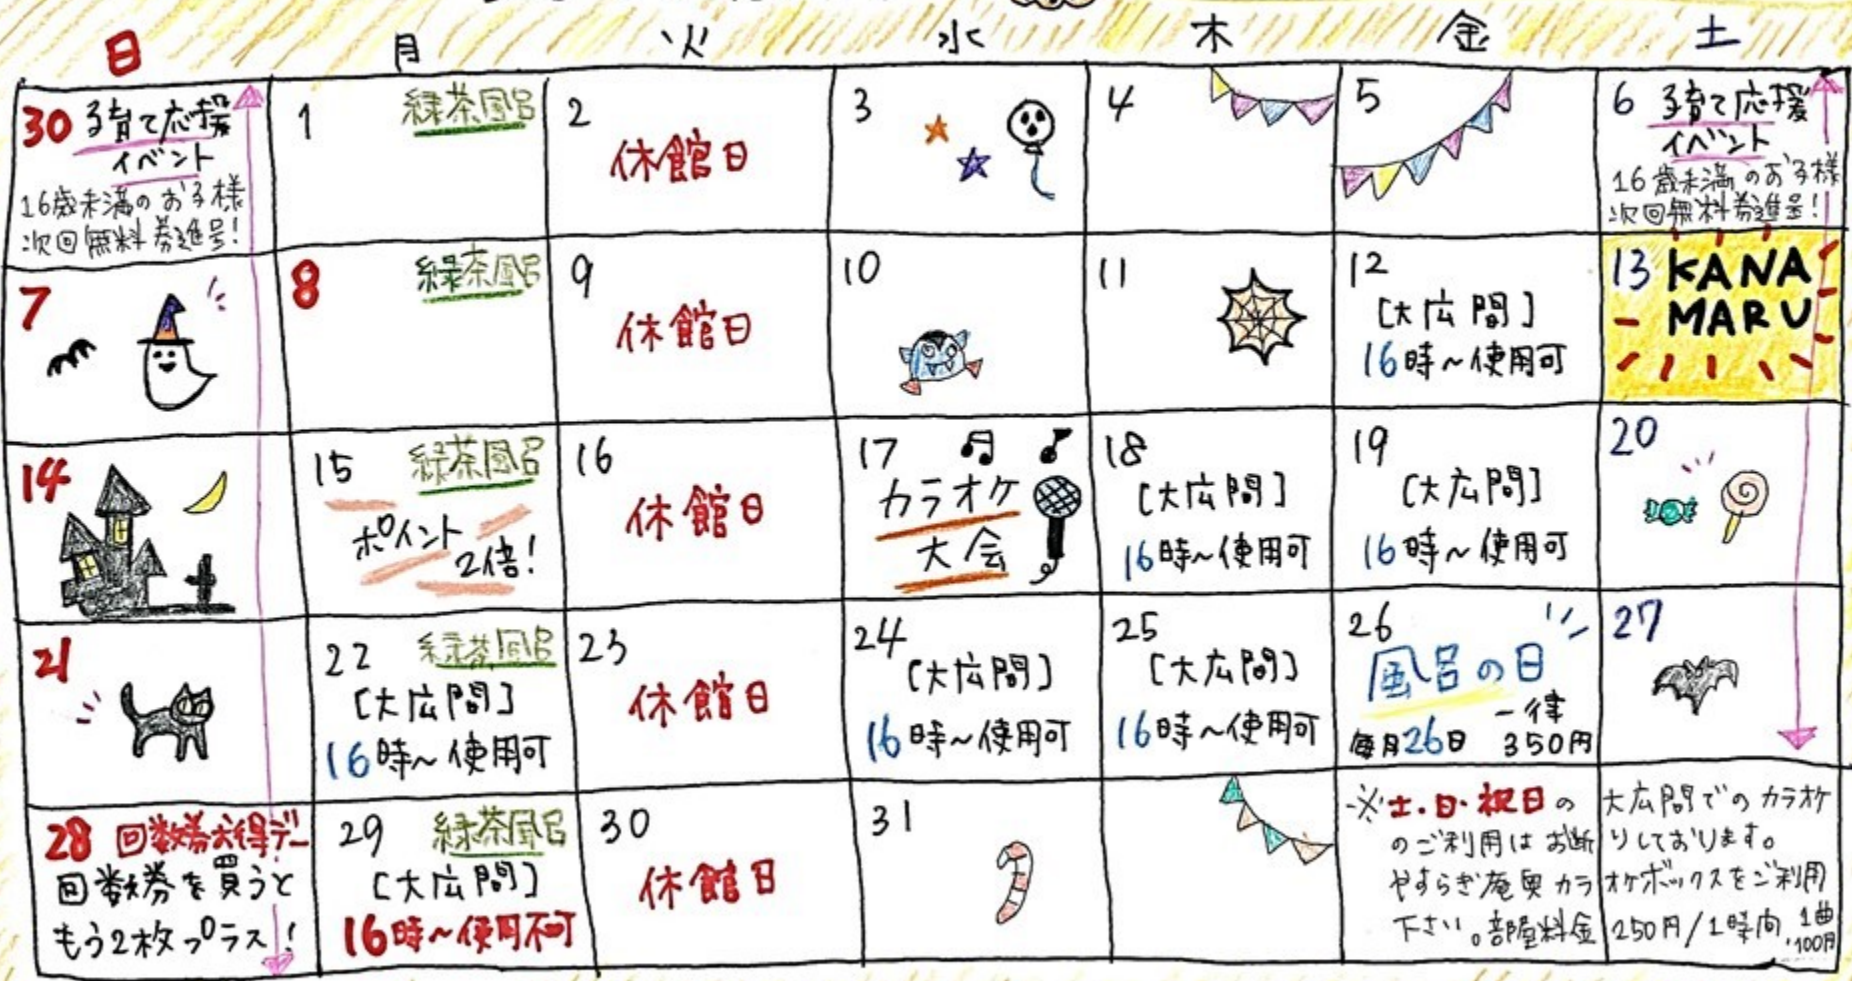 日 月 火 水 木 金 土
30 子育て応援
イベント
16歳未満のお子様
次回無料券進呈!
1 緑茶風呂
2
休館日
3
4
5
6 子育て応援
イベント
16歳未満のお子様
次回無料券進呈!
7
8 緑茶風呂
9
休館日
10
11
12
[大広間]
16時~使用可
13 KANA
MARU
14
15 緑茶風呂
ポイント
2倍!
16
休館日
17
カラオケ
大会
18
[大広間]
16時~使用可
19
[大広間]
16時~使用可
20
21
22 緑茶風呂
[大広間]
16時~使用可
23
休館日
24
[大広間]
16時~使用可
25
[大広間]
16時~使用可
26
風呂の日
一律
毎月26日 350円
27
28 回数券お得デー
回数券を買うと
もう2枚プラス!
29 緑茶風呂
[大広間]
16時~使用不可
30
休館日
31
※土・日・祝日の大広間でのカラオケ
のご利用はお断りしております。
やすらぎ庵奥カラオケボックスをご利用
下さい。部屋料金250円/1時間、1曲
100円